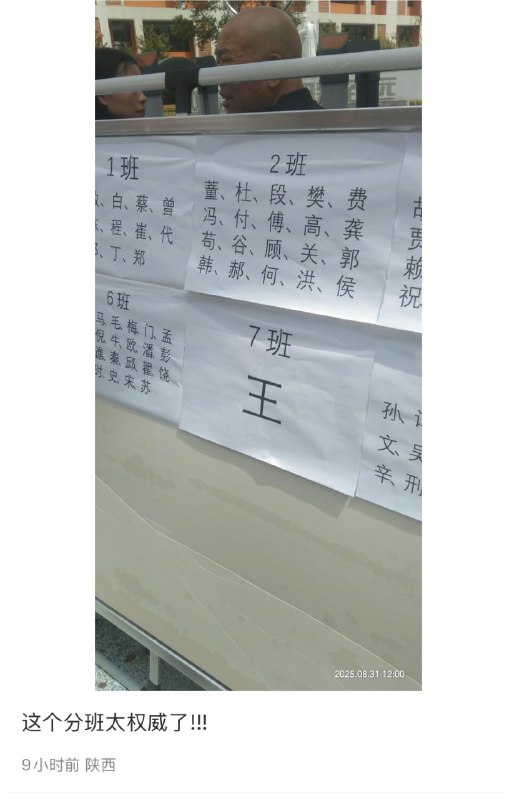 1班
、白、蔡、曾
、程、崔、代
、丁、郑
2班
董、杜、段、樊、费
冯、付、傅、高、龚
苟、谷、顾、关、郭
韩、郝、何、洪、侯
贾
赖
祝
6班
马、毛、梅、门、孟
倪、牛、欧、潘、彭
谯、秦、邱、翟、饶
时、史、宋、苏
7班
王
孙、
文、吴
辛、刑
2025.08.31 12:00
这个分班太权威了!!!
9小时前 陕西